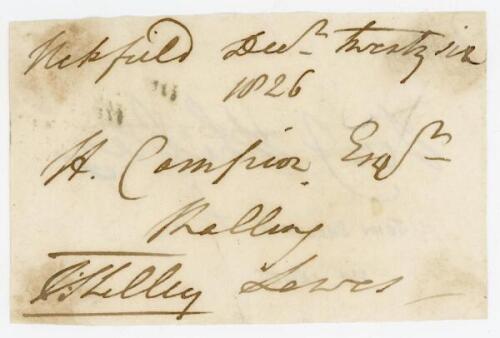 Uckfield Decr. twenty six
1826
W. Campion Esqr.
Malling
Lewes
JShelley